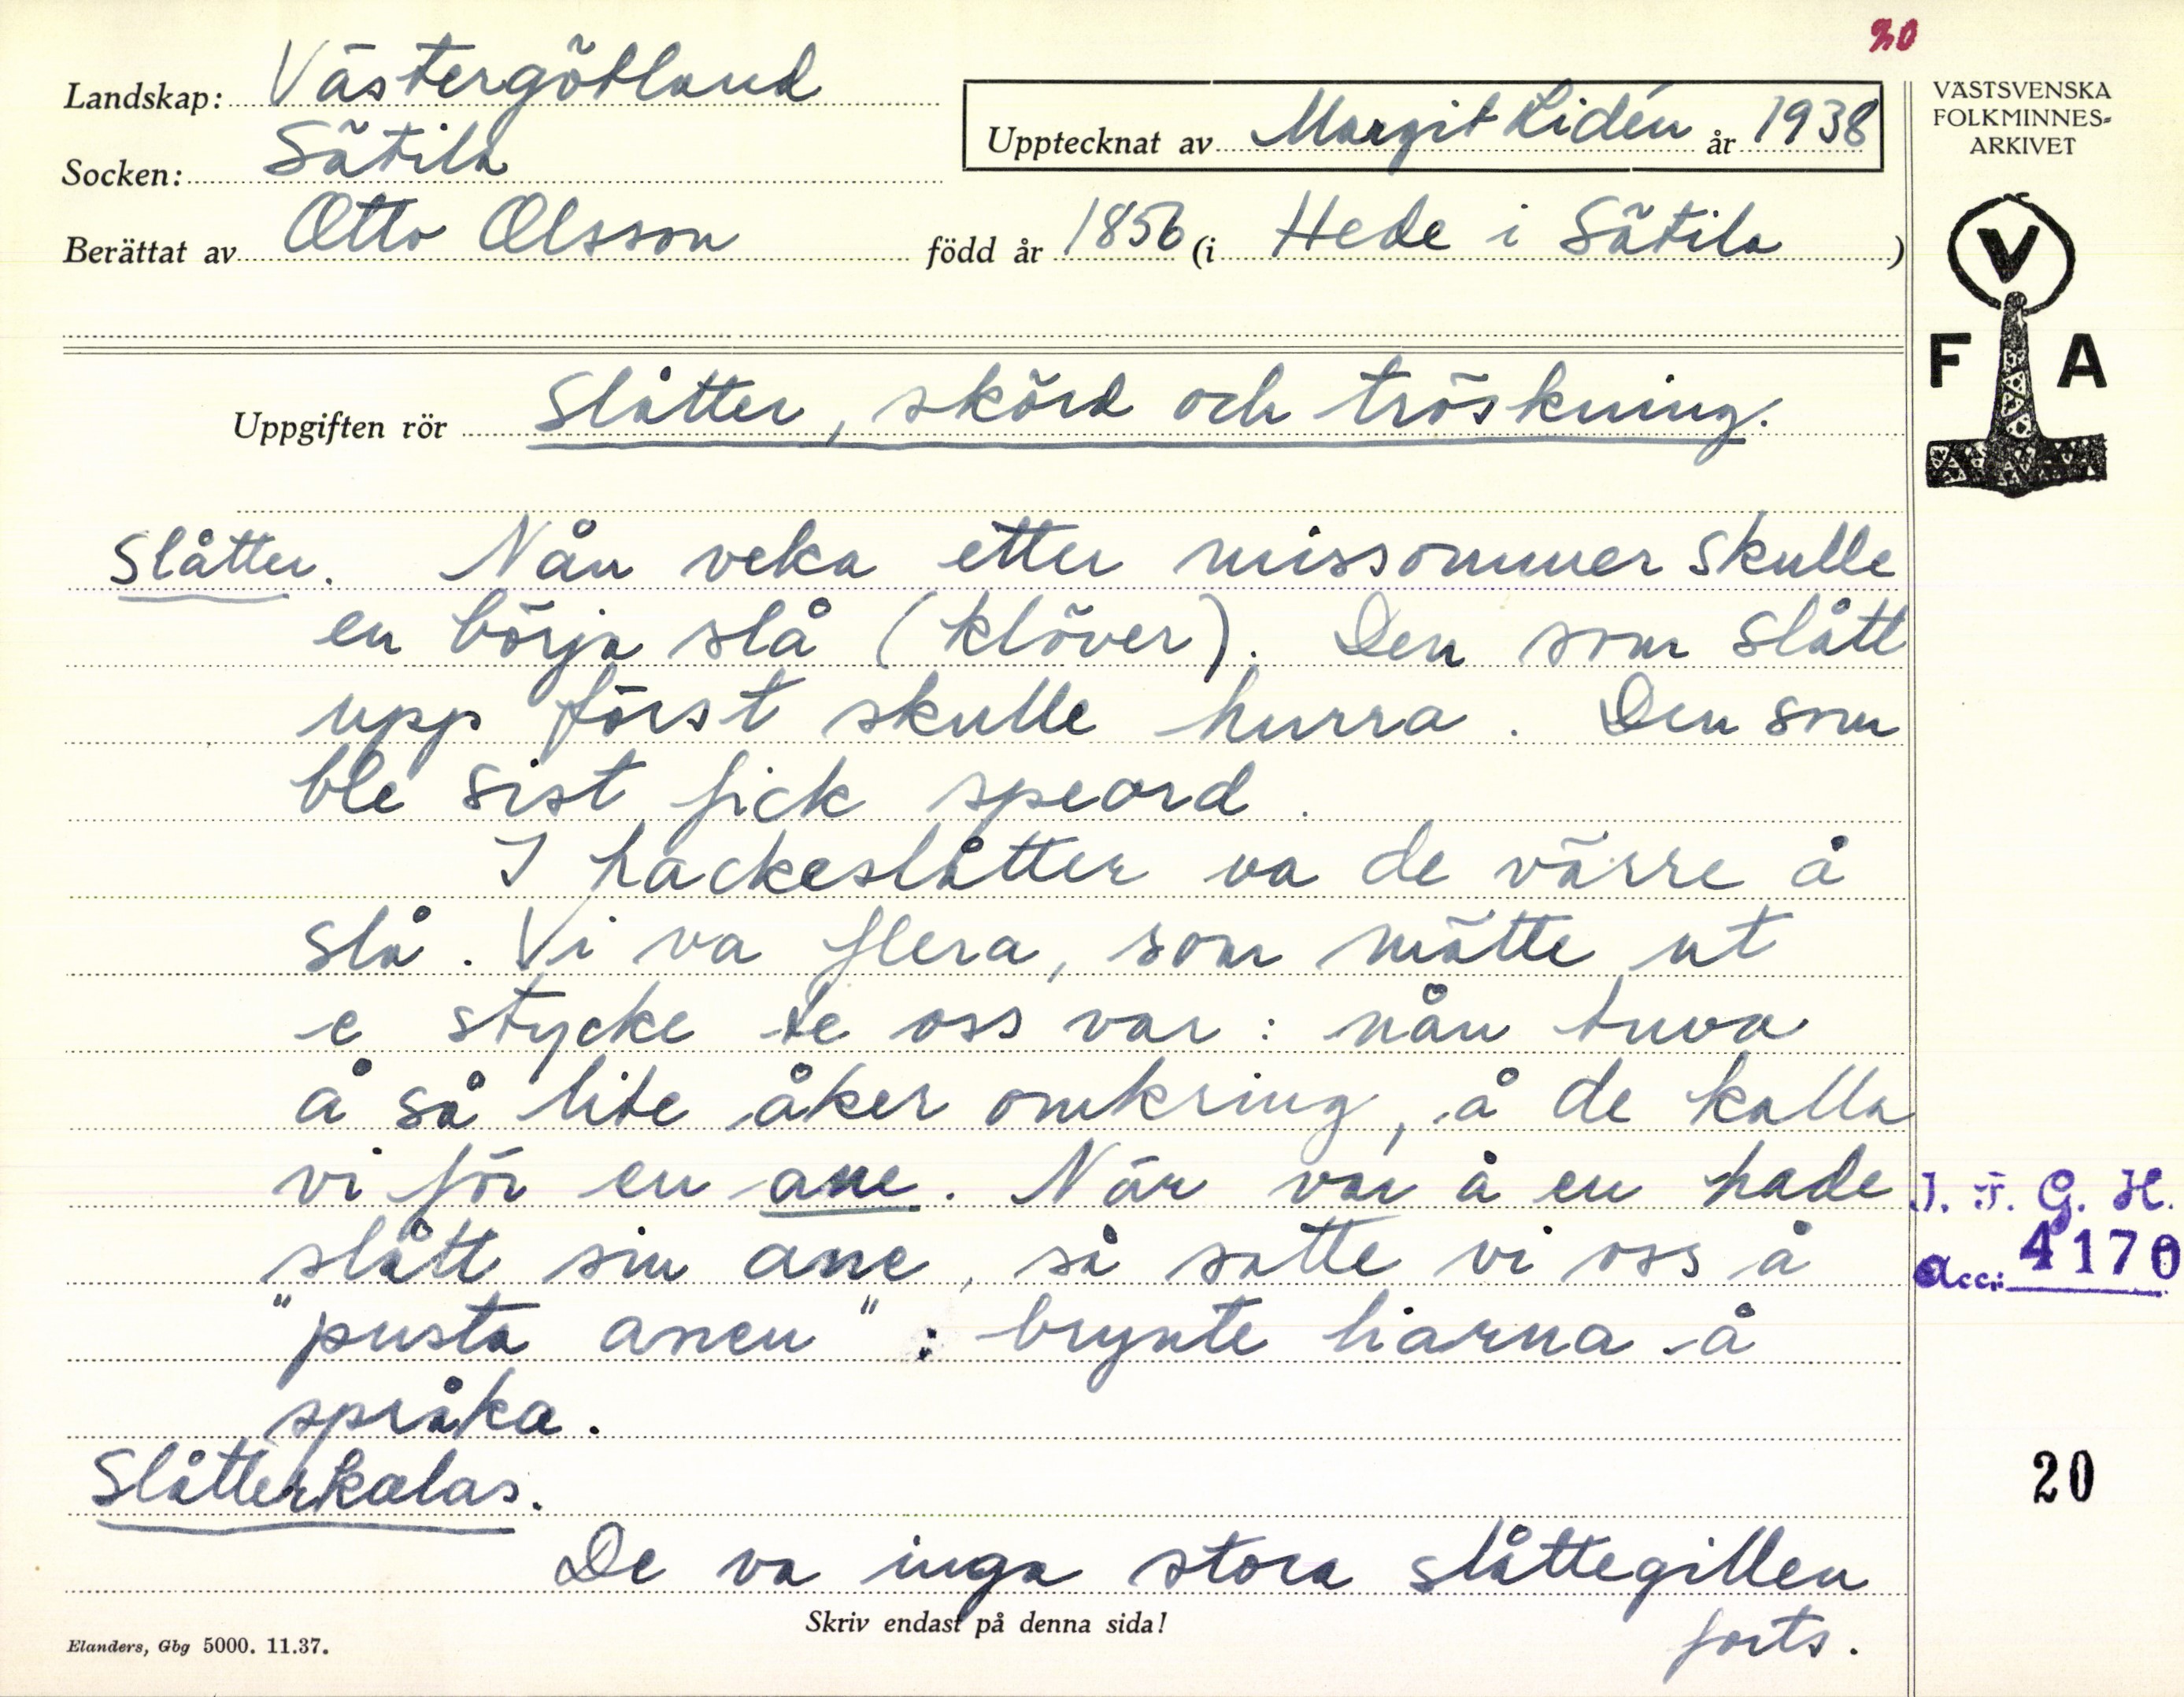 20
Landskap: Västergötland
Socken: Sätila
Berättat av Otto Olsson född år 1856 (i Hede i Sätila )
Upptecknat av Margit Lidén år 1938
VÄSTSVENSKA
FOLKMINNES-
ARKIVET
V
F A
Uppgiften rör Slåtter, skörd och tröskning.
Slåtter. Nån veka etter missommer skulle
en börja slå (klöver). Den som slått
upp först skulle hurra. Den som
ble sist fick speord.
I hackeslåtter va de värre å
slå. Vi va flera, som mätte ut
e stycke te oss var: nån tuva
å så lite åker omkring, å de kalla
vi för en ane. När var å en hade
slått sin ane, så satte vi oss å
"pusta anen": brynte liarna å
språka.
Slåtterkalas.
De va inga stora slåttegillen
forts.
I. F. G. H.
acc: 4170
20
Skriv endast på denna sida!
Elanders, Gbg 5000. 11.37.